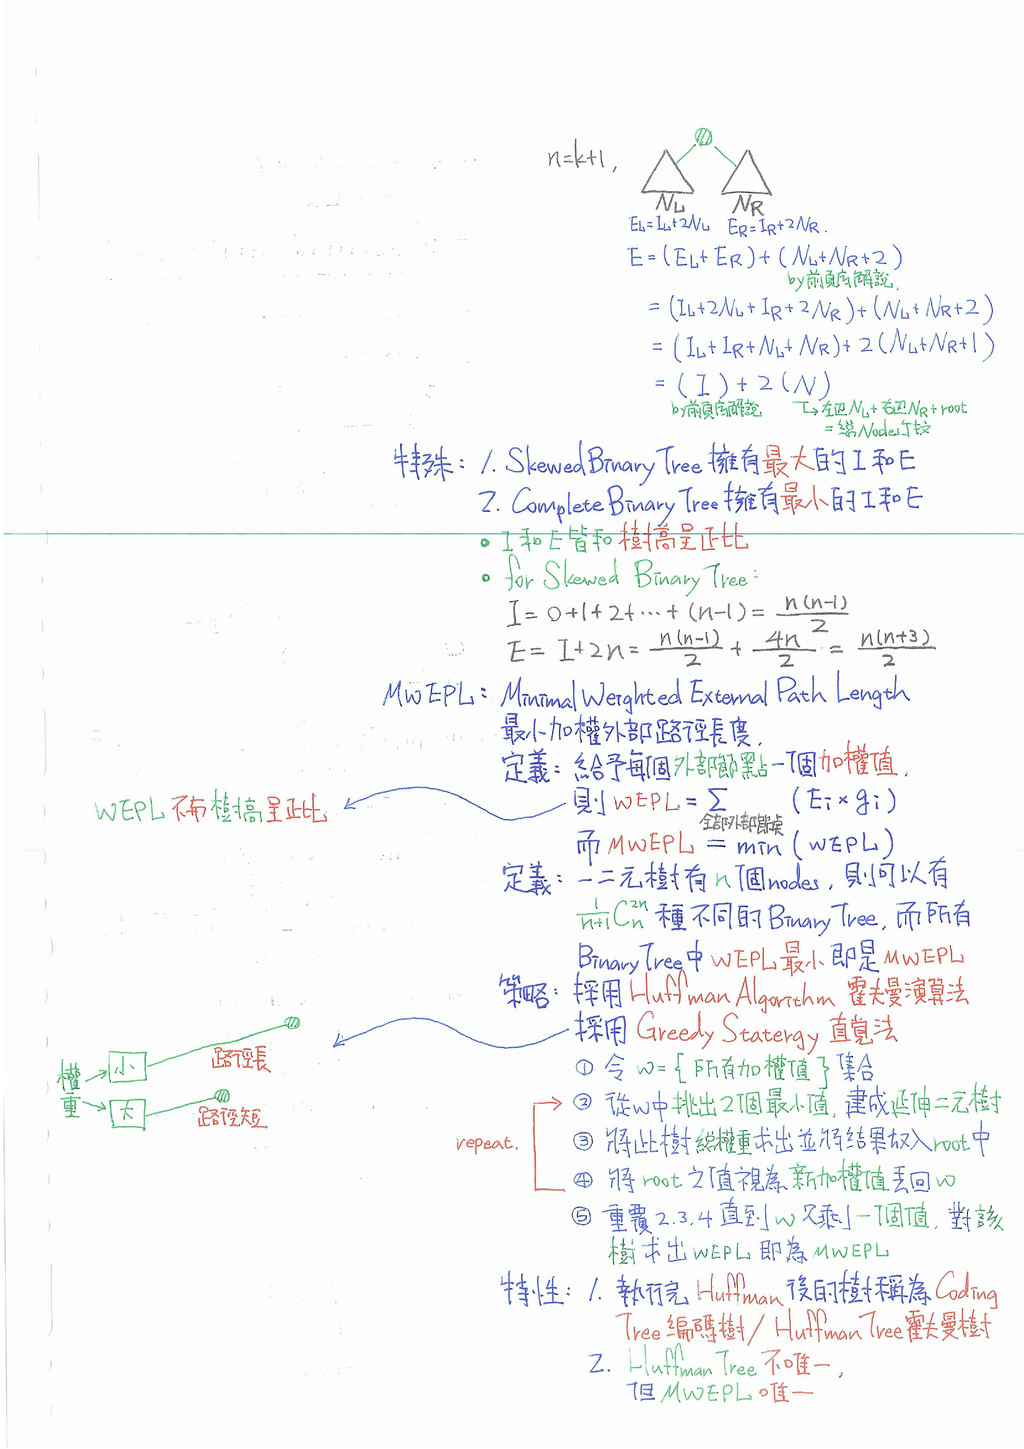 n=k+1,
NL NR
EL=IL+2NL ER=IR+2NR.
E=(EL+ER)+(NL+NR+2)
by前頁底解說.
=(IL+2NL+IR+2NR)+(NL+NR+2)
=(IL+IR+NL+NR)+2(NL+NR+1)
=(I)+2(N)
by前頁底解說 →左邊NL+右邊NR+root
=總Node個數
特殊: 1. Skewed Binary Tree 擁有最大的I和E
2. Complete Binary Tree 擁有最小的I和E
• I和E皆和樹高呈正比
• for Skewed Binary Tree:
I=0+1+2+…+(n-1)= n(n-1)/2
E= I+2n= n(n-1)/2 + 4n/2 = n(n+3)/2
MWEPL: Minimal Weighted External Path Length
最小加權外部路徑長度.
定義: 給予每個外部節點一個加權值,
則 WEPL=Σ (Ei×gi)
全部外部節點
WEPL 不和樹高呈正比
而 MWEPL = min (WEPL)
定義: 一二元樹有n個nodes, 則可以有
1/n+1 C2n n 種不同的Binary Tree, 而所有
Binary Tree中WEPL最小即是MWEPL
策略: 採用 Huffman Algorithm 霍夫曼演算法
採用 Greedy Statergy 直覺法
權重
小 路徑長
大 路徑短
① 令 w={所有加權值}集合
② 從w中挑出2個最小值, 建成延伸二元樹
③ 將此樹總權重求出並將結果放入root中
repeat.
④ 將root之值視為新加權值丟回w
⑤ 重覆2.3.4直到w只剩一個值, 對該
樹求出WEPL即為MWEPL
特性: 1. 執行完Huffman後的樹稱為Coding
Tree編碼樹/Huffman Tree霍夫曼樹
2. Huffman Tree不唯一,
但MWEPL唯一